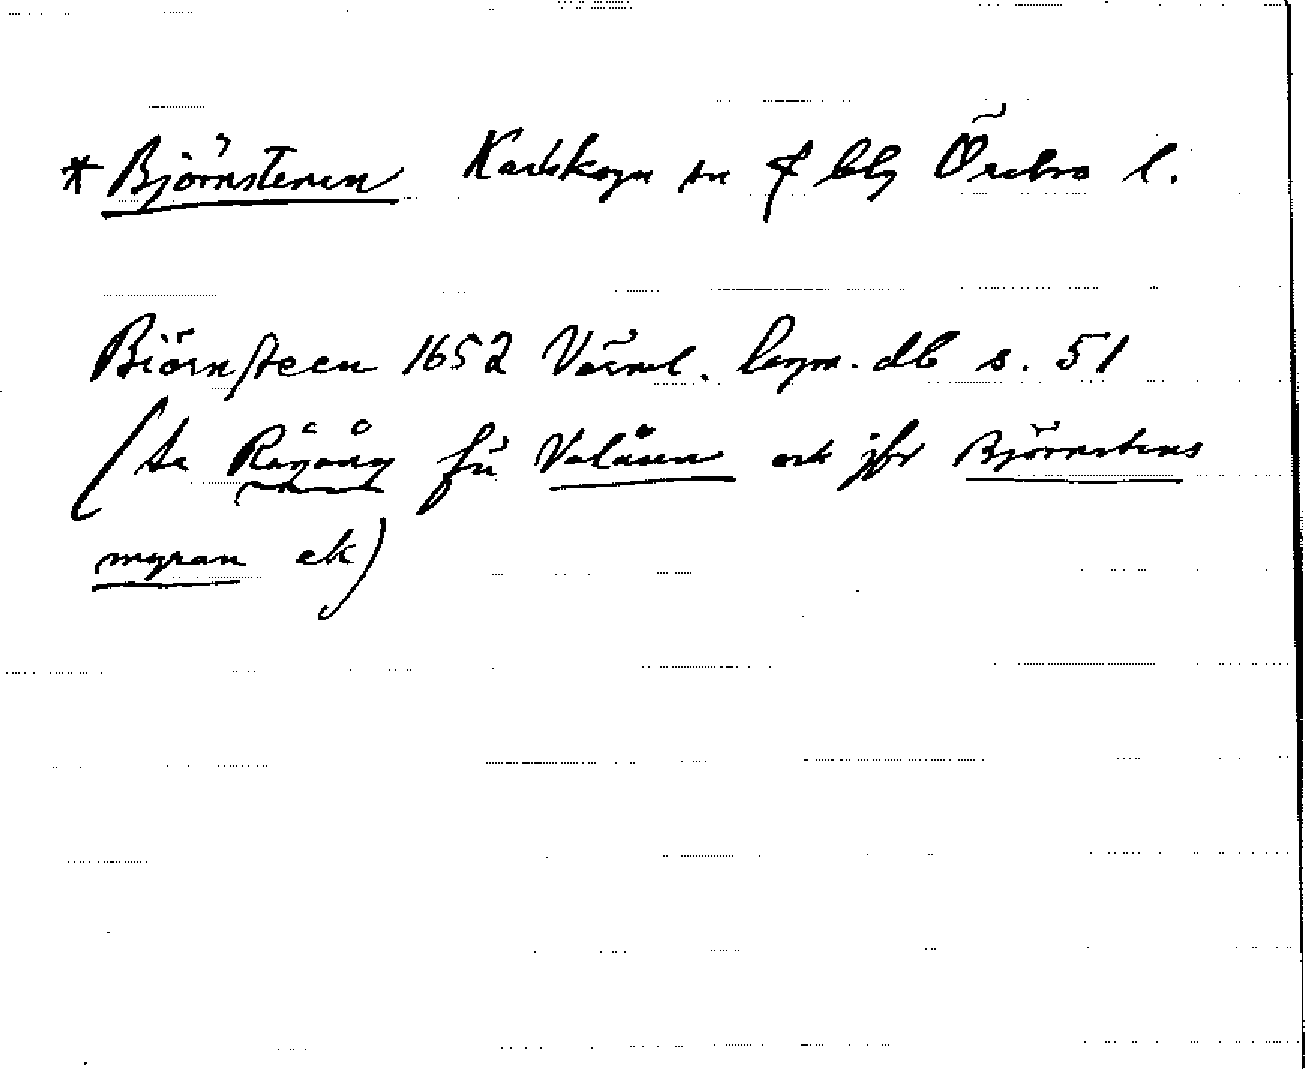 * Björnstenen Karlskoga sn f bbg Örebro l.
Biörnsteen 1652 Värml. lagm. db s. 51
(se Rågång för Valåsen och jfr Björnstens
myran ek)